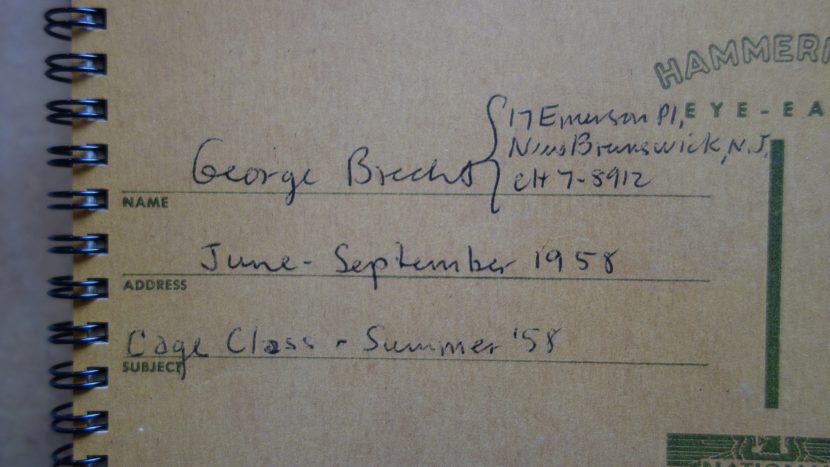 HAMMERM
EYE-EA
17 Emerson Pl,
New Brunswick, N.J.
CH 7-8912
George Brecht
NAME
June - September 1958
ADDRESS
Cage Class - Summer '58
SUBJECT